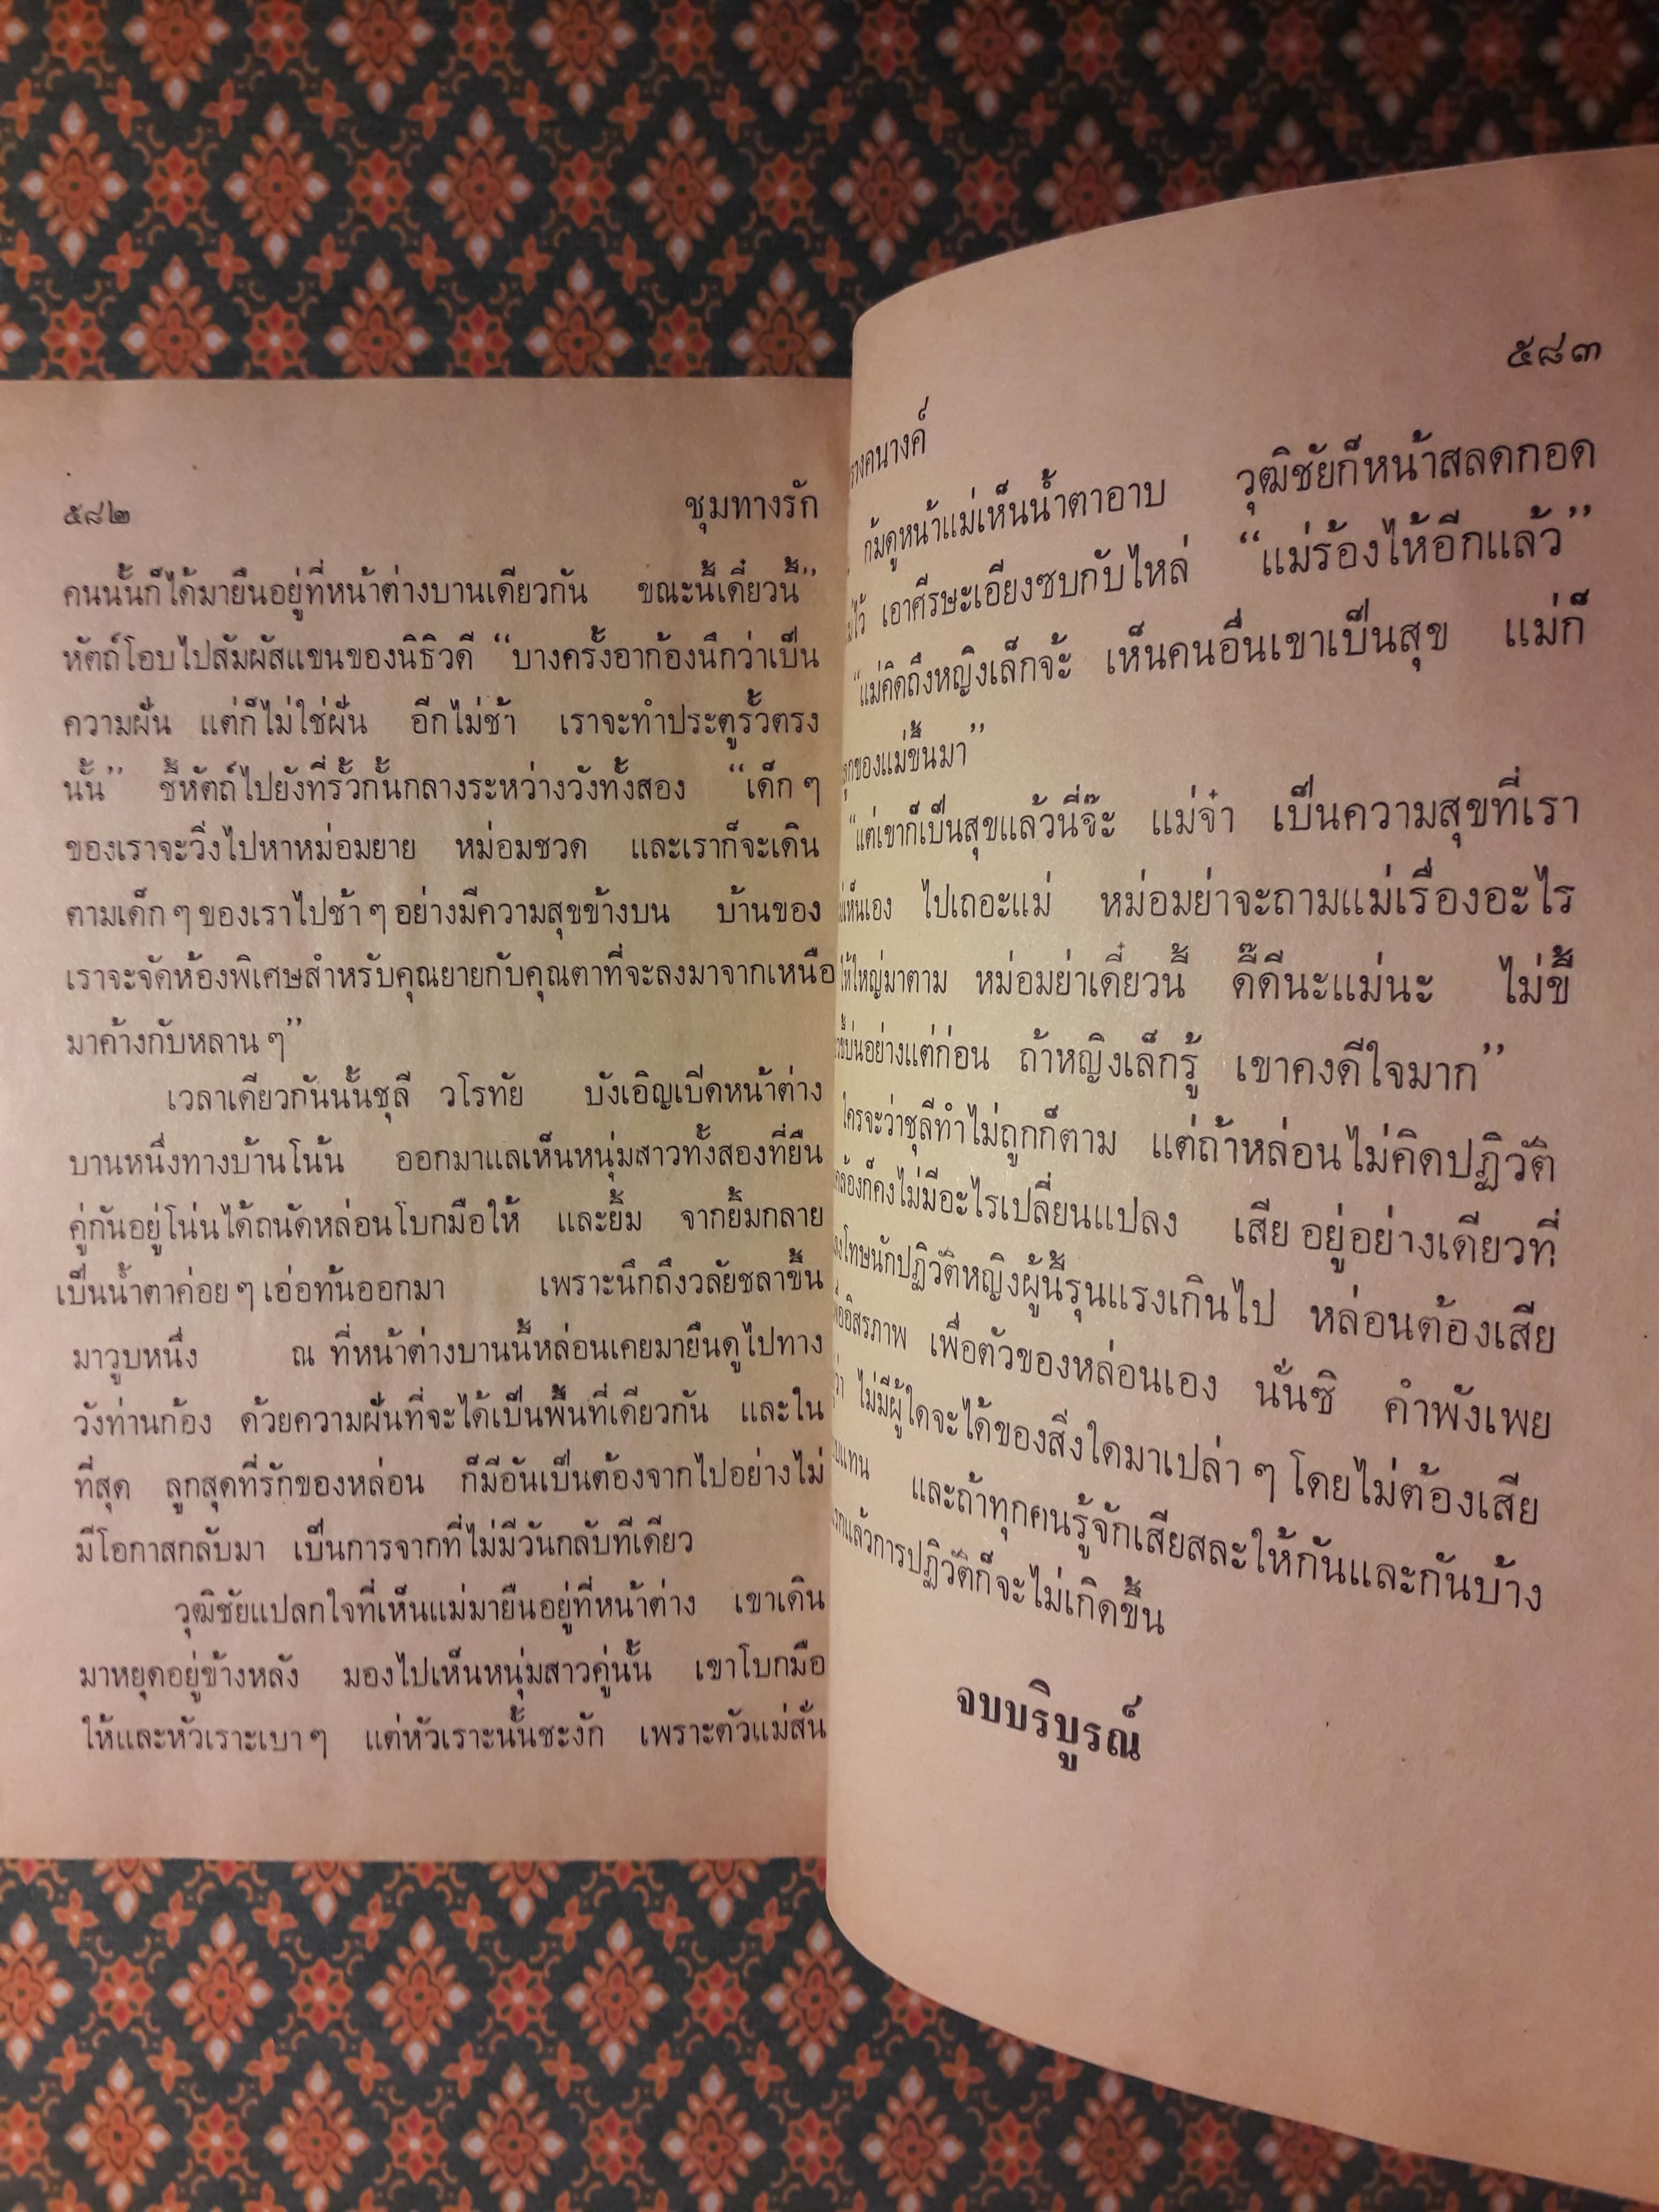 ๕๘๒ ชุมทางรัก
คนนั้นก็ได้มายืนอยู่ที่หน้าต่างบานเดียวกัน ขณะนี้เดี๋ยวนี้”
หัตถ์โอบไปสัมผัสแขนของนิธิวดี “บางครั้งอาก้องนึกว่าเป็น
ความฝัน แต่ก็ไม่ใช่ฝัน อีกไม่ช้า เราจะทำประตูรั้วตรง
นั้น” ชี้หัตถ์ไปยังที่รั้วกั้นกลางระหว่างวังทั้งสอง “เด็ก ๆ
ของเราจะวิ่งไปหาหม่อมยาย หม่อมชวด และเราก็จะเดิน
ตามเด็ก ๆ ของเราไปช้า ๆ อย่างมีความสุขข้างบน บ้านของ
เราจะจัดห้องพิเศษสำหรับคุณยายกับคุณตาที่จะลงมาจากเหนือ
มาค้างกับหลาน ๆ”
เวลาเดียวกันนั้นชุลี วโรทัย บังเอิญเปิดหน้าต่าง
บานหนึ่งทางบ้านโน้น ออกมาแลเห็นหนุ่มสาวทั้งสองที่ยืน
คู่กันอยู่โน่นได้ถนัดหล่อนโบกมือให้ และยิ้ม จากยิ้มกลาย
เป็นน้ำตาค่อย ๆ เอ่อท้นออกมา เพราะนึกถึงวลัยชลาขึ้น
มาวูบหนึ่ง ณ ที่หน้าต่างบานนี้หล่อนเคยมายืนดูไปทาง
วังท่านก้อง ด้วยความฝันที่จะได้เป็นพื้นที่เดียวกัน และใน
ที่สุด ลูกสุดที่รักของหล่อน ก็มีอันเป็นต้องจากไปอย่างไม่
มีโอกาสกลับมา เป็นการจากที่ไม่มีวันกลับทีเดียว
วุฒิชัยแปลกใจที่เห็นแม่มายืนอยู่ที่หน้าต่าง เขาเดิน
มาหยุดอยู่ข้างหลัง มองไปเห็นหนุ่มสาวคู่นั้น เขาโบกมือ
ให้และหัวเราะเบา ๆ แต่หัวเราะนั้นชะงัก เพราะตัวแม่สั่น
๕๘๓
ก้มดูหน้าแม่เห็นน้ำตาอาบ วุฒิชัยก็หน้าสลดกอด
ไว้ เอาศีรษะเอียงซบกับไหล่ “แม่ร้องไห้อีกแล้ว”
“แม่คิดถึงหญิงเล็กจ้ะ เห็นคนอื่นเขาเป็นสุข แม่ก็
ของแม่ขึ้นมา”
“แต่เขาก็เป็นสุขแล้วนี่จ๊ะ แม่จ๋า เป็นความสุขที่เรา
เห็นเอง ไปเถอะแม่ หม่อมย่าจะถามแม่เรื่องอะไร
ให้ใหญ่มาตาม หม่อมย่าเดี๋ยวนี้ ดี๊ดีนะแม่นะ ไม่ขี้
บ่นอย่างแต่ก่อน ถ้าหญิงเล็กรู้ เขาคงดีใจมาก”
ใครจะว่าชุลีทำไม่ถูกก็ตาม แต่ถ้าหล่อนไม่คิดปฏิวัติ
ก็คงไม่มีอะไรเปลี่ยนแปลง เสีย อยู่อย่างเดียวที่
โทษนักปฏิวัติหญิงผู้นี้รุนแรงเกินไป หล่อนต้องเสีย
อิสรภาพ เพื่อตัวของหล่อนเอง นั่นซิ คำพังเพย
ว่า ไม่มีผู้ใดจะได้ของสิ่งใดมาเปล่า ๆ โดยไม่ต้องเสีย
แทน และถ้าทุกคนรู้จักเสียสละให้กันและกันบ้าง
แล้วการปฏิวัติก็จะไม่เกิดขึ้น
จบบริบูรณ์